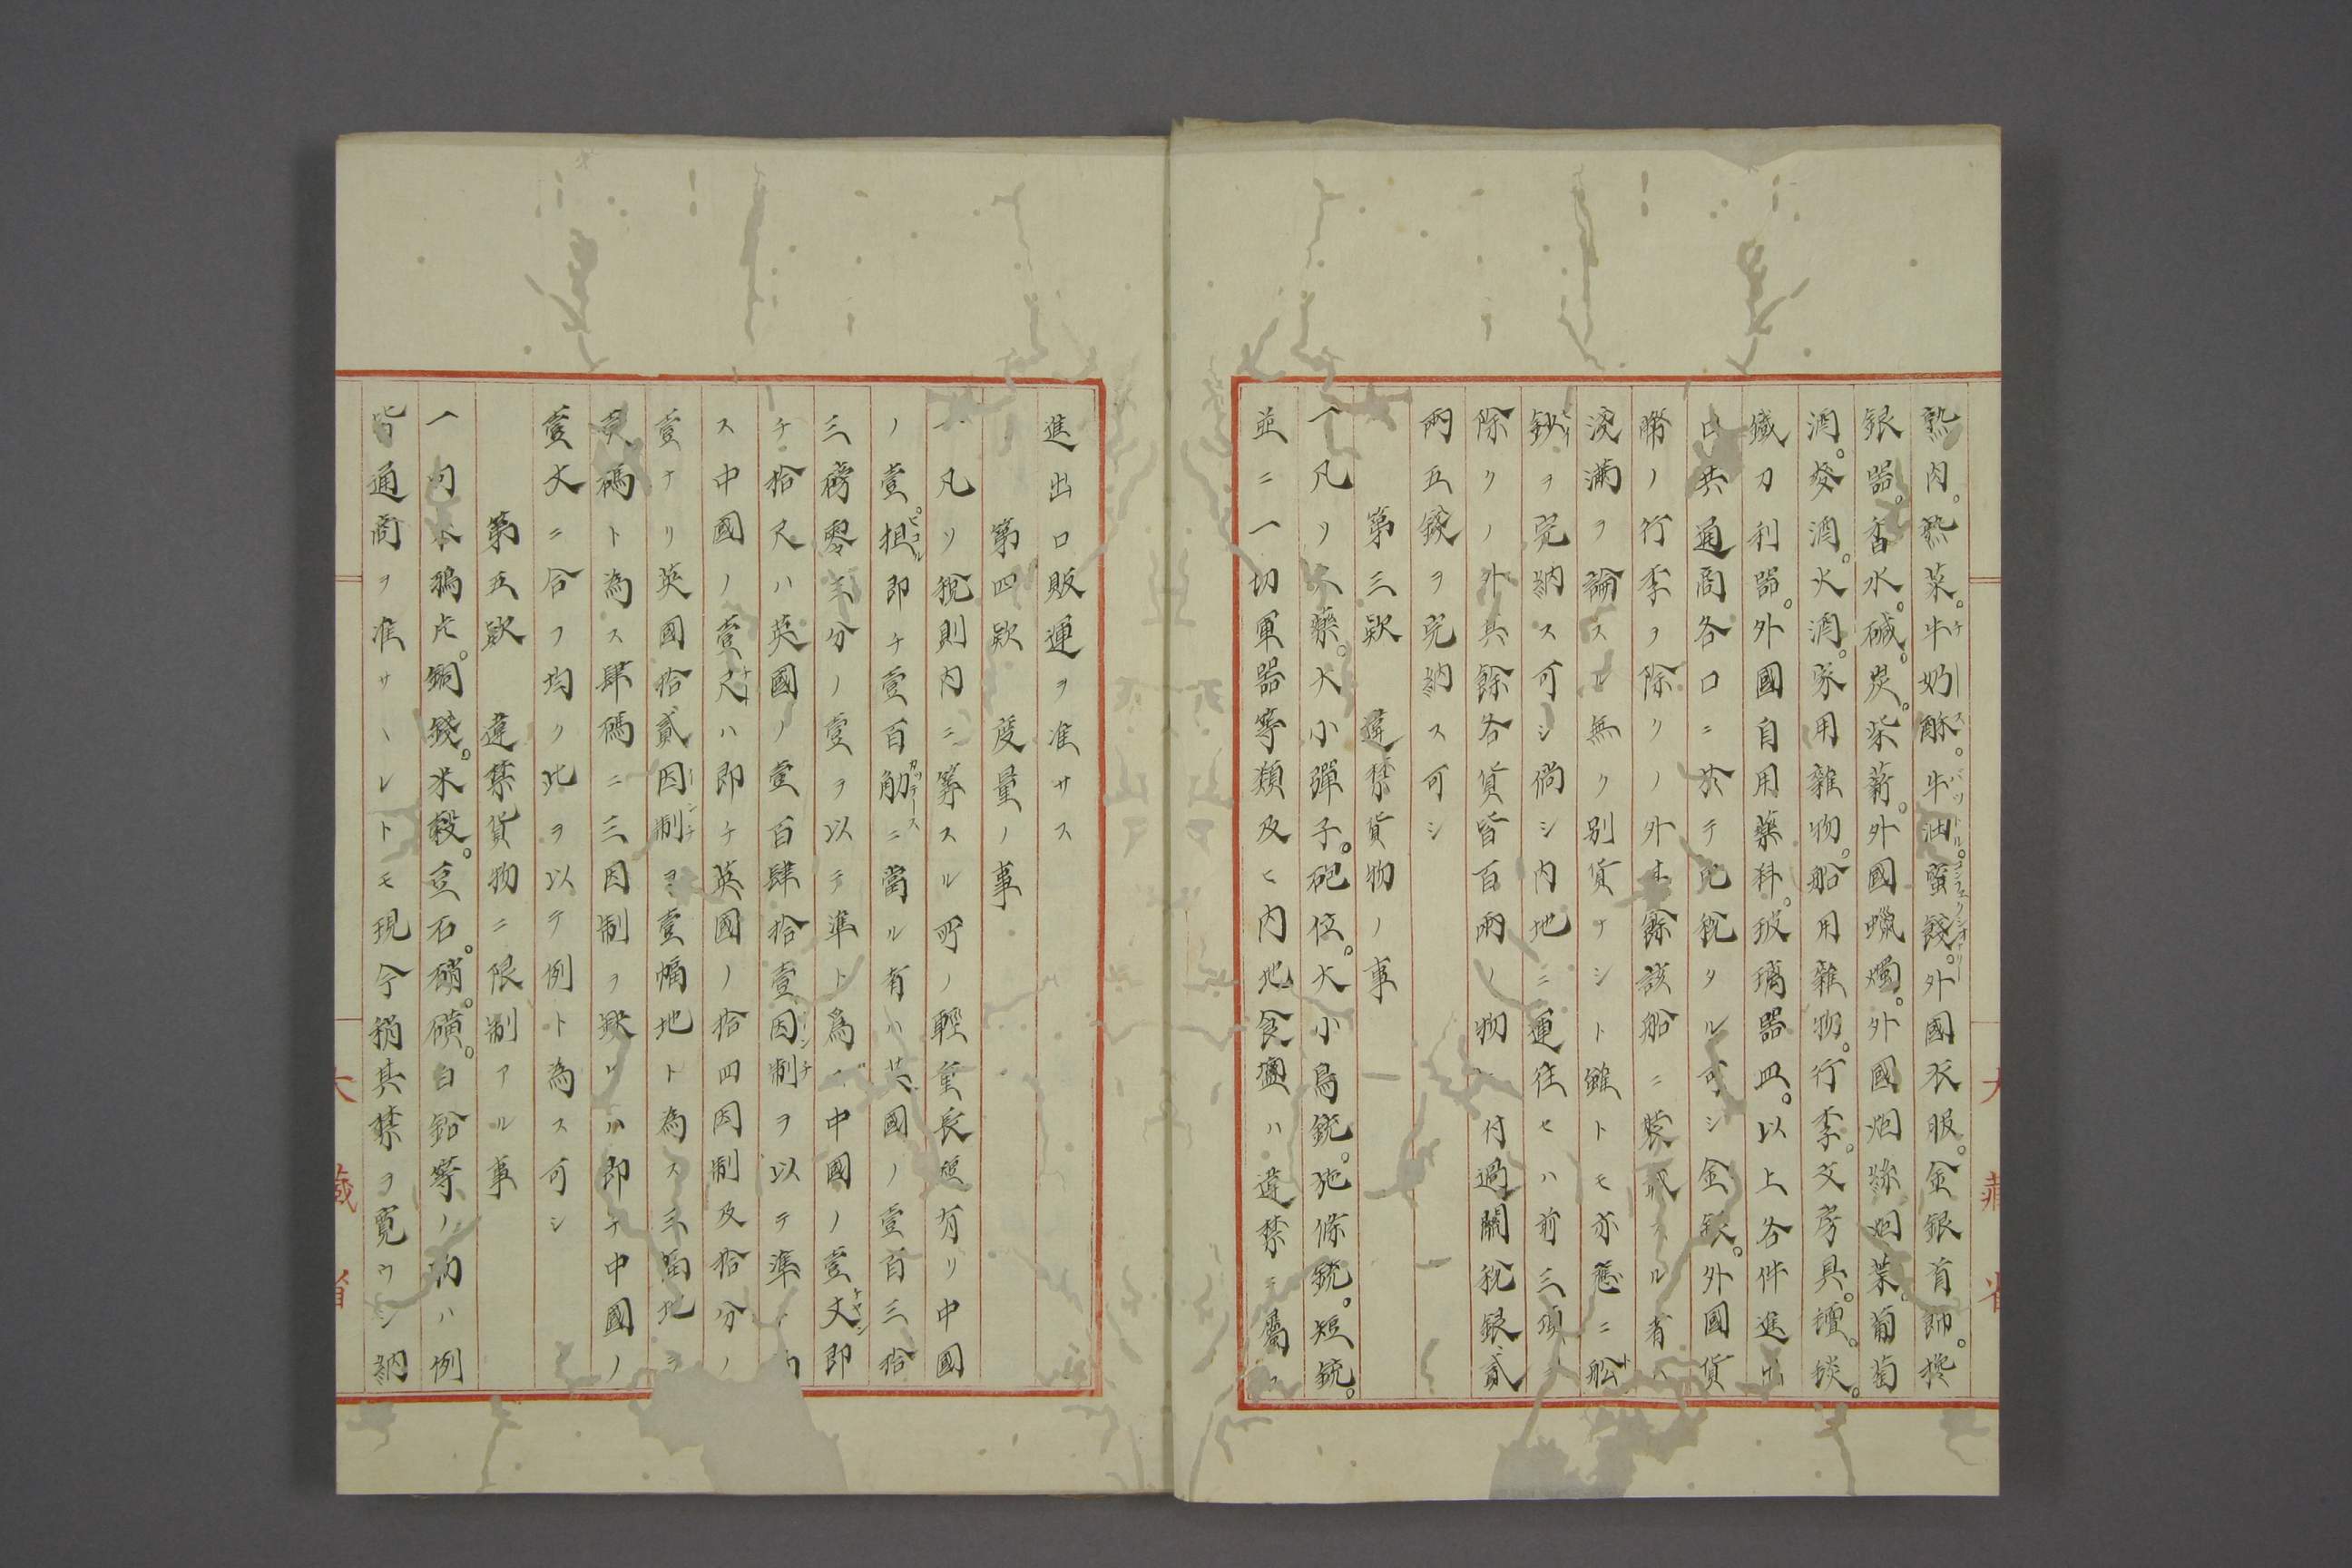 熟肉。熟菜。牛奶酥。牛油。蜜餞。外國衣服。金銀首飾。攙
銀器。香水。碱。炭。柴薪。外國蠟燭。外國烟絲烟葉。葡萄
酒。麥酒。火酒。家用雜物。船用雜物。行李。文房具。氊。毯。
鐵刀利器。外國自用藥料。玻璃器皿。以上各件進出
口共通商各口ニ於テ免稅タル可シ金銀。外國貨
幣ノ行李ヲ除クノ外其餘該船ニ裝載スル者ハ
淺滿ヲ論スル無ク別貨ナシト雖トモ亦應ニ船
鈔ヲ完納ス可シ倘シ内地ニ運往セハ前三項ヲ
除クノ外其餘各貨皆百兩ノ物 付過關稅銀貳
兩五錢ヲ完納ス可シ
第三欵 違禁貨物ノ事
一凡ソ火藥。大小彈子。砲位。大小鳥銃。 銃。短銃。
並ニ一切軍器等類及ヒ内地食鹽ハ違禁ニ屬
進出口販運ヲ准サス
第四欵 度量ノ事
一凡ソ稅則内ニ筭スル所ノ輕重長短有リ中國
ノ壹担即チ壹百觔ニ當ル者ハ英國ノ壹百三拾
三磅零三分ノ壹ヲ以テ準ト爲 中國ノ壹丈即
チ拾尺ハ英國ノ壹百肆拾壹因制ヲ以テ準ト
ス中國ノ壹尺ハ即チ英國ノ拾四因制及拾分ノ
壹ナリ英國拾貳因制ヲ壹幅地ト為ス三幅地ヲ
壹碼ト為ス肆碼ニ三因制ヲ缺 ハ即チ中國ノ
壹丈ニ合フ均ク此ヲ以テ例ト為ス可シ
第五欵 違禁貨物ニ限制アル事
一向來鴉片。銅錢。米穀。豆石。硝。磺。白鉛等ノ物ハ例
皆通商ヲ准サヽレトモ現今稍其禁ヲ寛ウシ納